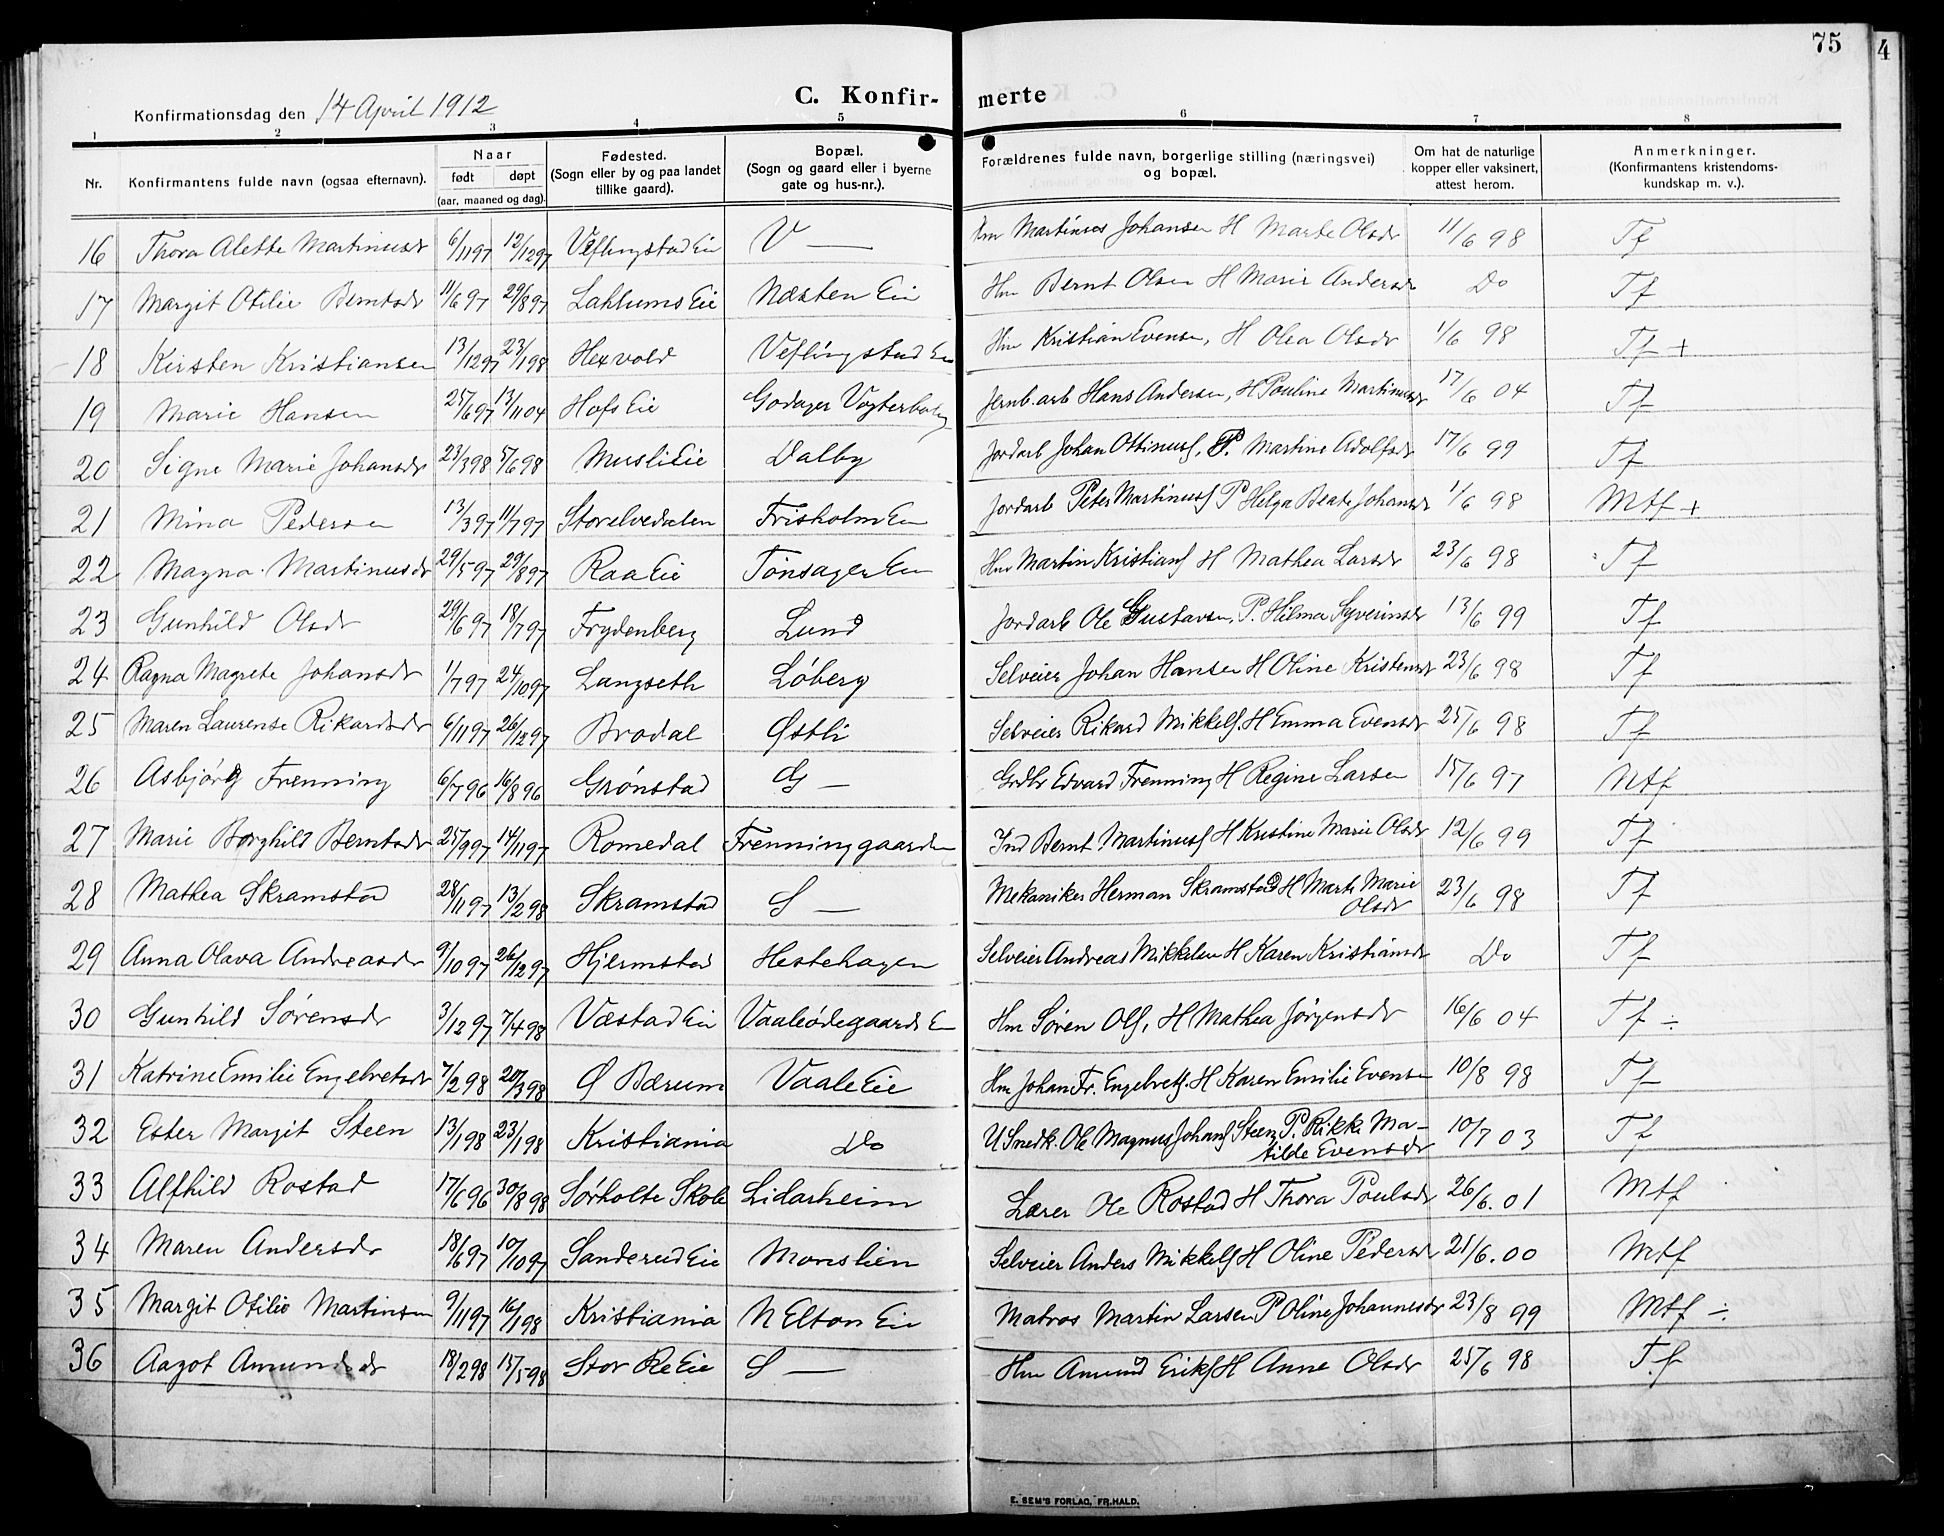 75
4
C. Konfir- merte
Konfirmationsdag den 14 April 1912
1 2 3 4 5 6 7 8
Nr. Konfirmantens fulde navn (ogsaa efternavn). Naar født døpt (aar, maaned og dag). Fødested. (Sogn eller by og paa landet tillike gaard). Bopæl. (Sogn og gaard eller i byerne gate og hus-nr.). Forældrenes fulde navn, borgerlige stilling (næringsvei) og bopæl. Om hat de naturlige kopper eller vaksinert, attest herom. Anmerkninger. (Konfirmantens kristendoms- kundskap m. v.).
16 Thora Alette Martinusdr 6/11 97 12/12 97 Veflingstad Eie V — Hm Martinus Johansen H Marte Olsdr 11/6 98 Tf
17 Margit Otilie Berntsdr 11/6 97 29/8 97 Lahlums Eie Næsten Eie Hm Bernt Olsen H Marie Andersdr Do Tf
18 Kirsten Kristiansen 13/12 97 23/1 98 Hexvold Veflingstad Eie Hm Kristian Evensen, H Olea Olsdr 1/6 98 Tf +
19 Marie Hansen 25/6 97 13/11 04 Hofs Eie Godager Vogterbolig Jernb. arb Hans Andersen, H Pauline Martinusdr 17/6 04 Tf
20 Signe Marie Johansdr 23/3 98 5/6 98 Musli Eie Dalby Jordarb Johan Ottinusf, P. Martine Adolfsdr 17/6 99 Tf
21 Mina Pedersen 13/3 97 11/7 97 Storelvedalen Frisholm Eie Jordarb Peter Martinusf P Helga Beate Johansdr 1/6 98 Mtf +
22 Magna Martinusdr 29/5 97 29/8 97 Raa Eie Tonsager Eie Hm Martin Kristiansf H Mathea Larsdr 23/6 98 Tf
23 Gunhild Olsdr 29/6 97 18/7 97 Frydenberg Lund Jordarb Ole Gustavsen, P. Hilma Syverinsdr 13/6 99 Tf
24 Ragna Magrete Johansdr 1/7 97 24/10 97 Langseth Løberg Selveier Johan Hansen H Oline Kristensdr 23/6 98 Tf
25 Maren Laurense Rikardsdr 6/11 97 26/12 97 Brodal Østli Selveier Rikard Mikkelsf. H Emma Evensdr 25/6 98 Tf
26 Asbjørg Frenning 6/7 96 16/8 96 Grønstad G — Grdbr Edvard Frenning H Regine Larsen 15/6 97 Mtf
27 Marie Borghild Berntsdr 25/9 97 14/11 97 Romedal Frenninggaarden Ind Bernt Martinusf H Kristine Marie Olsdr 12/6 99 Tf
28 Mathea Skramstad 28/11 97 13/2 98 Skramstad S — Mekaniker Herman Skramstad H Marte Marie Olsdr 23/6 98 Tf
29 Anna Olava Andreasdr 9/10 97 26/12 97 Hjermstad Hestehagen Selveier Andreas Mikkelsen H Karen Kristiansdr Do Tf
30 Gunhild Sørensdr 3/12 97 7/4 98 Væstad Eie Vaaleødegaards E Hm Søren Olsf, H Mathea Jørgensdr 16/6 04 Tf ÷
31 Katrine Emilie Engebretsdr 7/2 98 20/3 98 Ø Bærum Vaale Eie Hm Johan Fr. Engebretsf. H Karen Emilie Evensen 10/8 98 Tf
32 Ester Margit Steen 13/1 98 23/1 98 Kristiania Do U Snedk. Ole Magnus Johansf Steen P. Rikke Ma- tilde Evensdr 10/7 03 Tf
33 Alfhild Rostad 17/6 96 30/8 98 Sørholte Skole Lidarheim Lærer Ole Rostad H Thora Poulsdr 26/6. 01 Mtf
34 Maren Andersdr 18/6 97 10/10 97 Sanderud Eie Monslien Selveier Anders Mikkelsf H Oline Pedersdr 21/6. 00 Mtf
35 Margit Otilie Martinsen 9/11 97 16/1 98 Kristiania N Elton Eie Matros Martin Larsen P Oline Johannesdr 23/8 99 Mtf ÷
36 Aagot Amundsdr 18/2 98 15/5 98 Stor Re Eie S — Hm Amund Eriksf H Anne Olsdr 25/6 98 Tf
E. SEM'S FORLAG, FR.HALD.